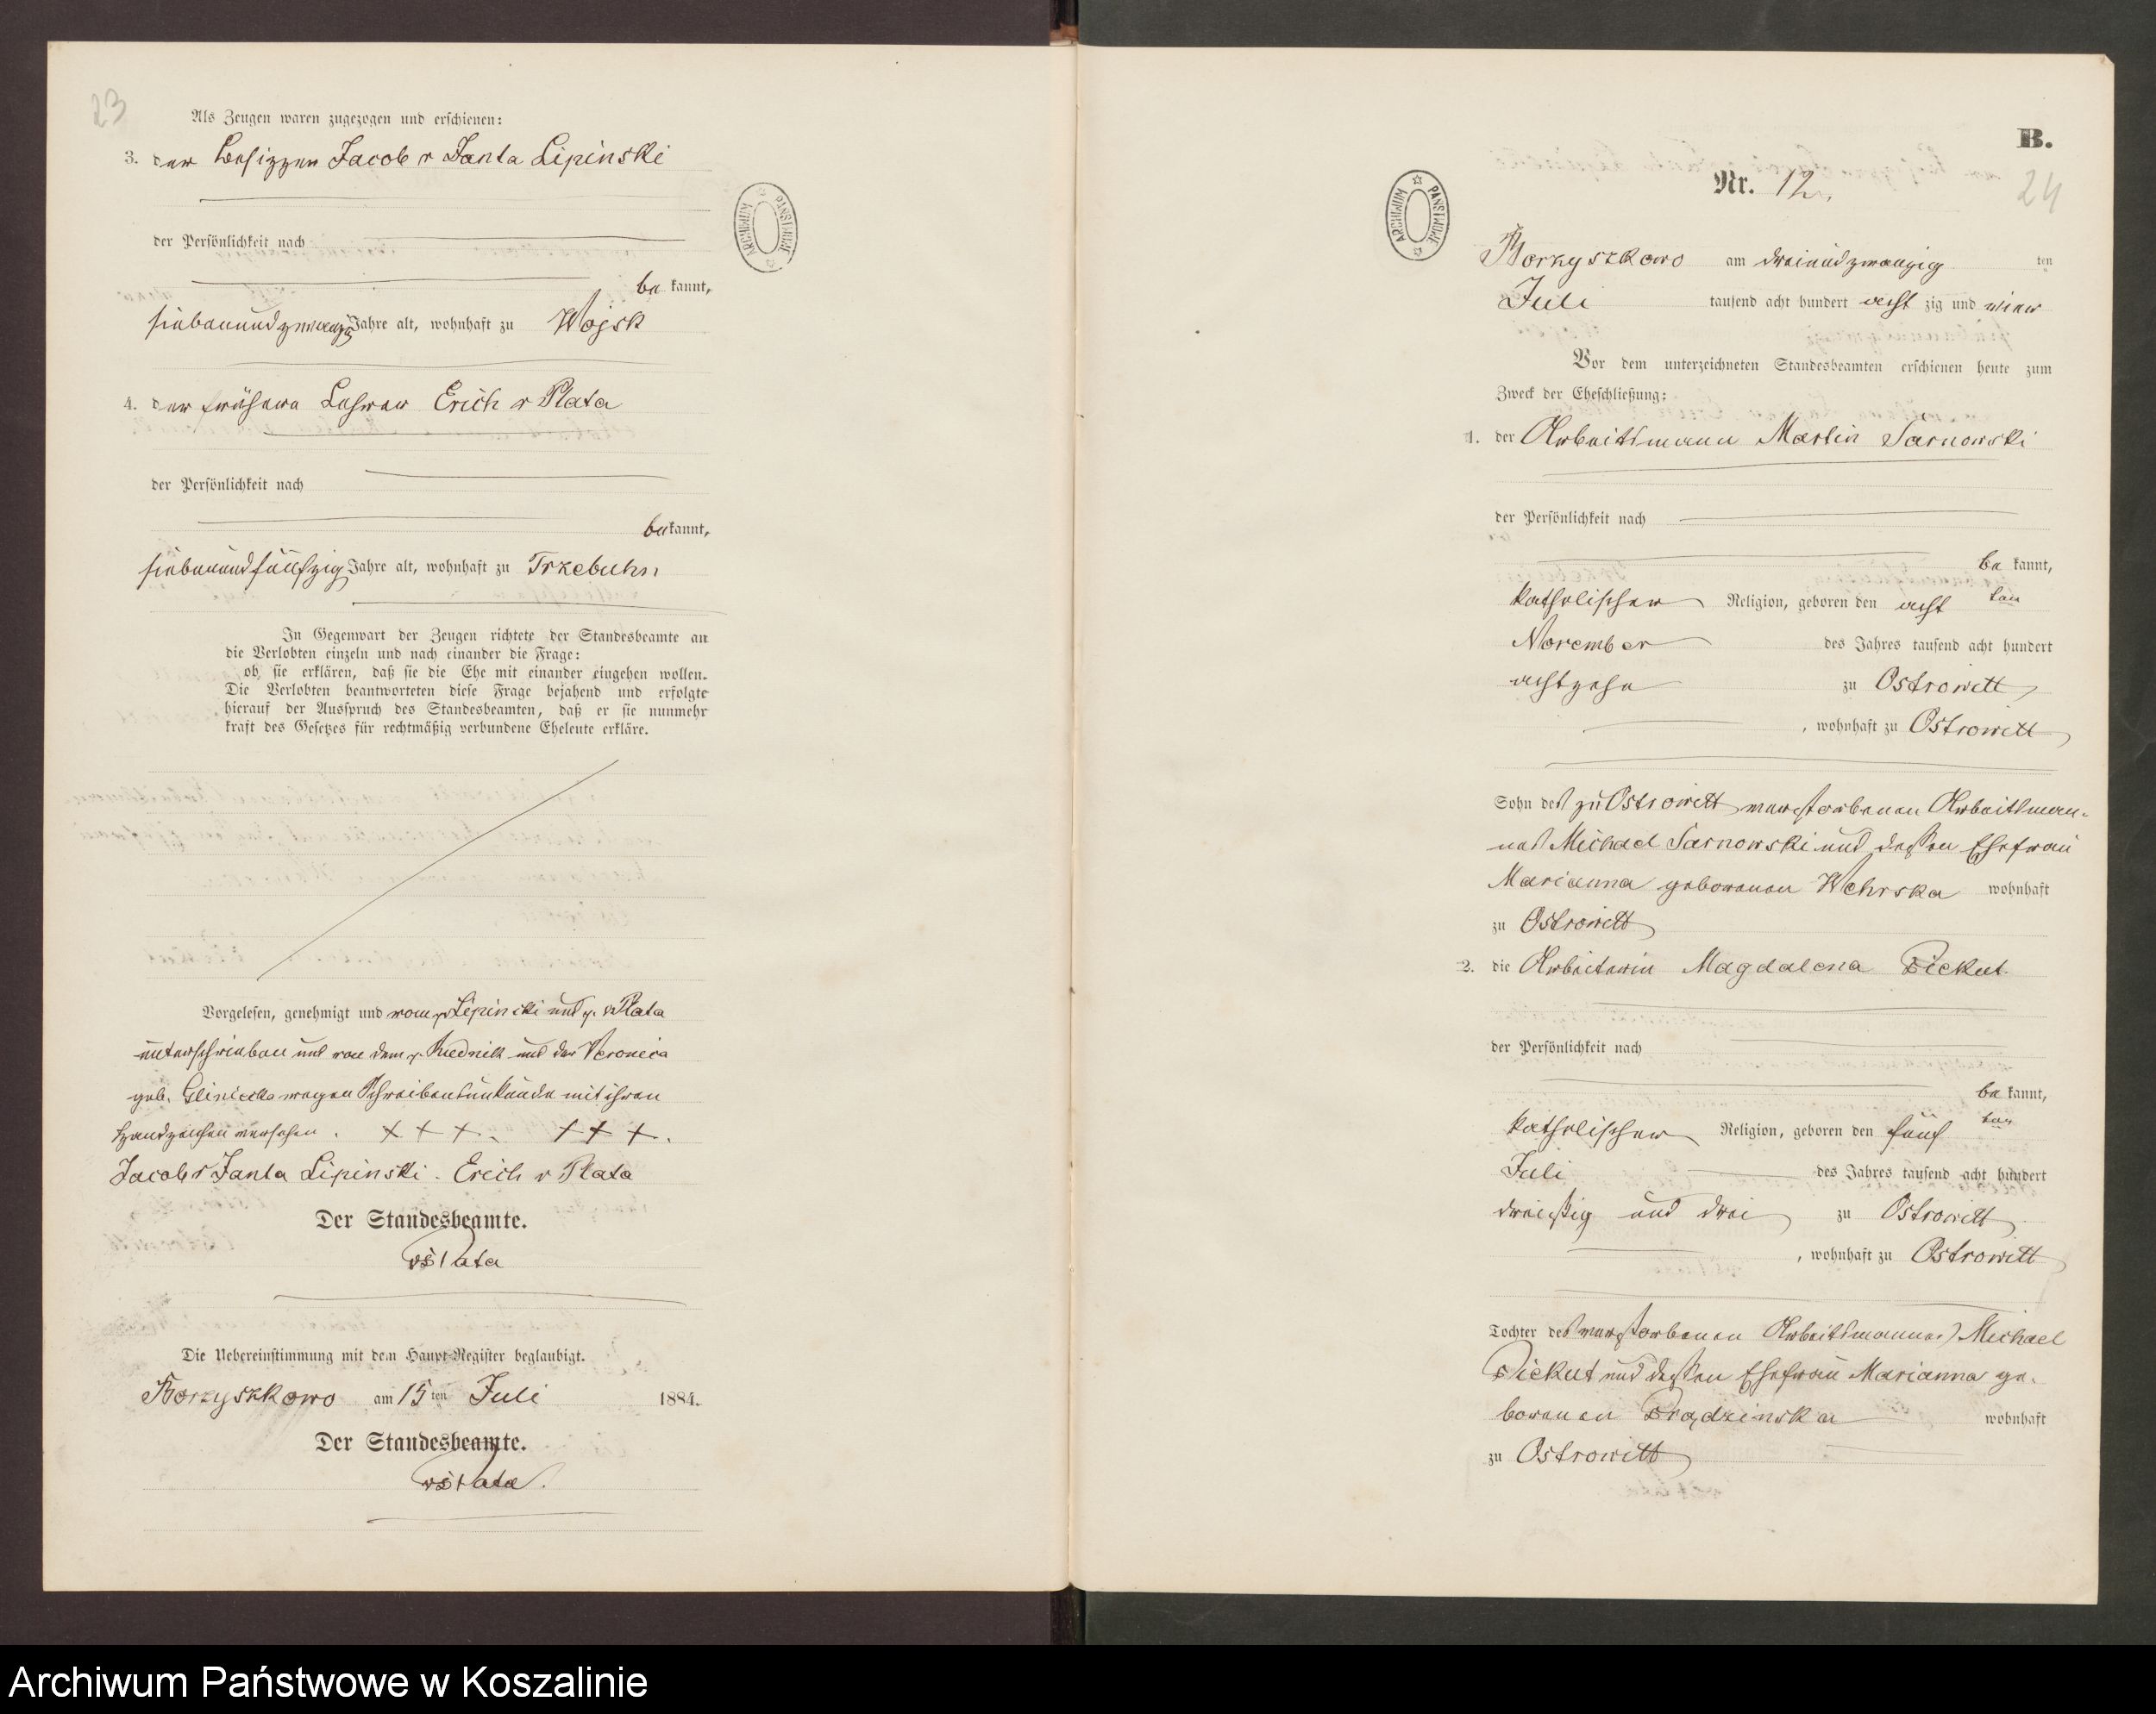 23
Als Zeugen waren zugezogen und erschienen:
3. der Besitzer Jacob v Janta Lipinski
der Persönlichkeit nach
be kannt,
siebenundzwanzig Jahre alt, wohnhaft zu Wojsk
4. der frühere Lehrer Erich v Plata
der Persönlichkeit nach
bekannt,
siebenundfünfzig Jahre alt, wohnhaft zu Trzebuhn
In Gegenwart der Zeugen richtete der Standesbeamte an
die Verlobten einzeln und nach einander die Frage:
ob sie erklären, daß sie die Ehe mit einander eingehen wollen.
Die Verlobten beantworteten diese Frage bejahend und erfolgte
hierauf der Ausspruch des Standesbeamten, daß er sie nunmehr
kraft des Gesetzes für rechtmäßig verbundene Eheleute erkläre.
Vorgelesen, genehmigt und vom p Lipinski und p. v Plata
unterschrieben und von dem p. Rudnik und der Veronica
geb. Glinicka wegen Schreibensunkunde mit ihren
Handzeichen versehen. + + + + + +.
Jacob v Janta Lipinski. Erich v Plata
Der Standesbeamte.
v Plata
Die Uebereinstimmung mit dem Haupt-Register beglaubigt.
Borzyszkowo am 15ten Juli 1884.
Der Standesbeamte.
v Plata.
ARCHIWUM PAŃSTWOWE
B.
Nr. 12.
24
ARCHIWUM PAŃSTWOWE
Borzyszkowo am dreiundzwanzig ten
Juli tausend acht hundert acht zig und vier
Vor dem unterzeichneten Standesbeamten erschienen heute zum
Zweck der Eheschließung:
1. der Arbeitsmann Martin Sarnowski
der Persönlichkeit nach
be kannt,
katholischer Religion, geboren den acht ten
November des Jahres tausend acht hundert
achtzehn zu Ostrowitt
, wohnhaft zu Ostrowitt
Sohn des zu Ostrowitt verstorbenen Arbeitsman-
nes Michael Sarnowski und dessen Ehefrau
Marianna geborenen Wehrska wohnhaft
zu Ostrowitt
2. die Arbeiterin Magdalena Piekut
der Persönlichkeit nach
be kannt,
katholischer Religion, geboren den fünf ten
Juli des Jahres tausend acht hundert
dreißig und drei zu Ostrowitt
, wohnhaft zu Ostrowitt
Tochter des verstorbenen Arbeitsmannes Michael
Piekut und dessen Ehefrau Marianna ge-
borenen Prądzinska wohnhaft
zu Ostrowitt
Archiwum Państwowe w Koszalinie